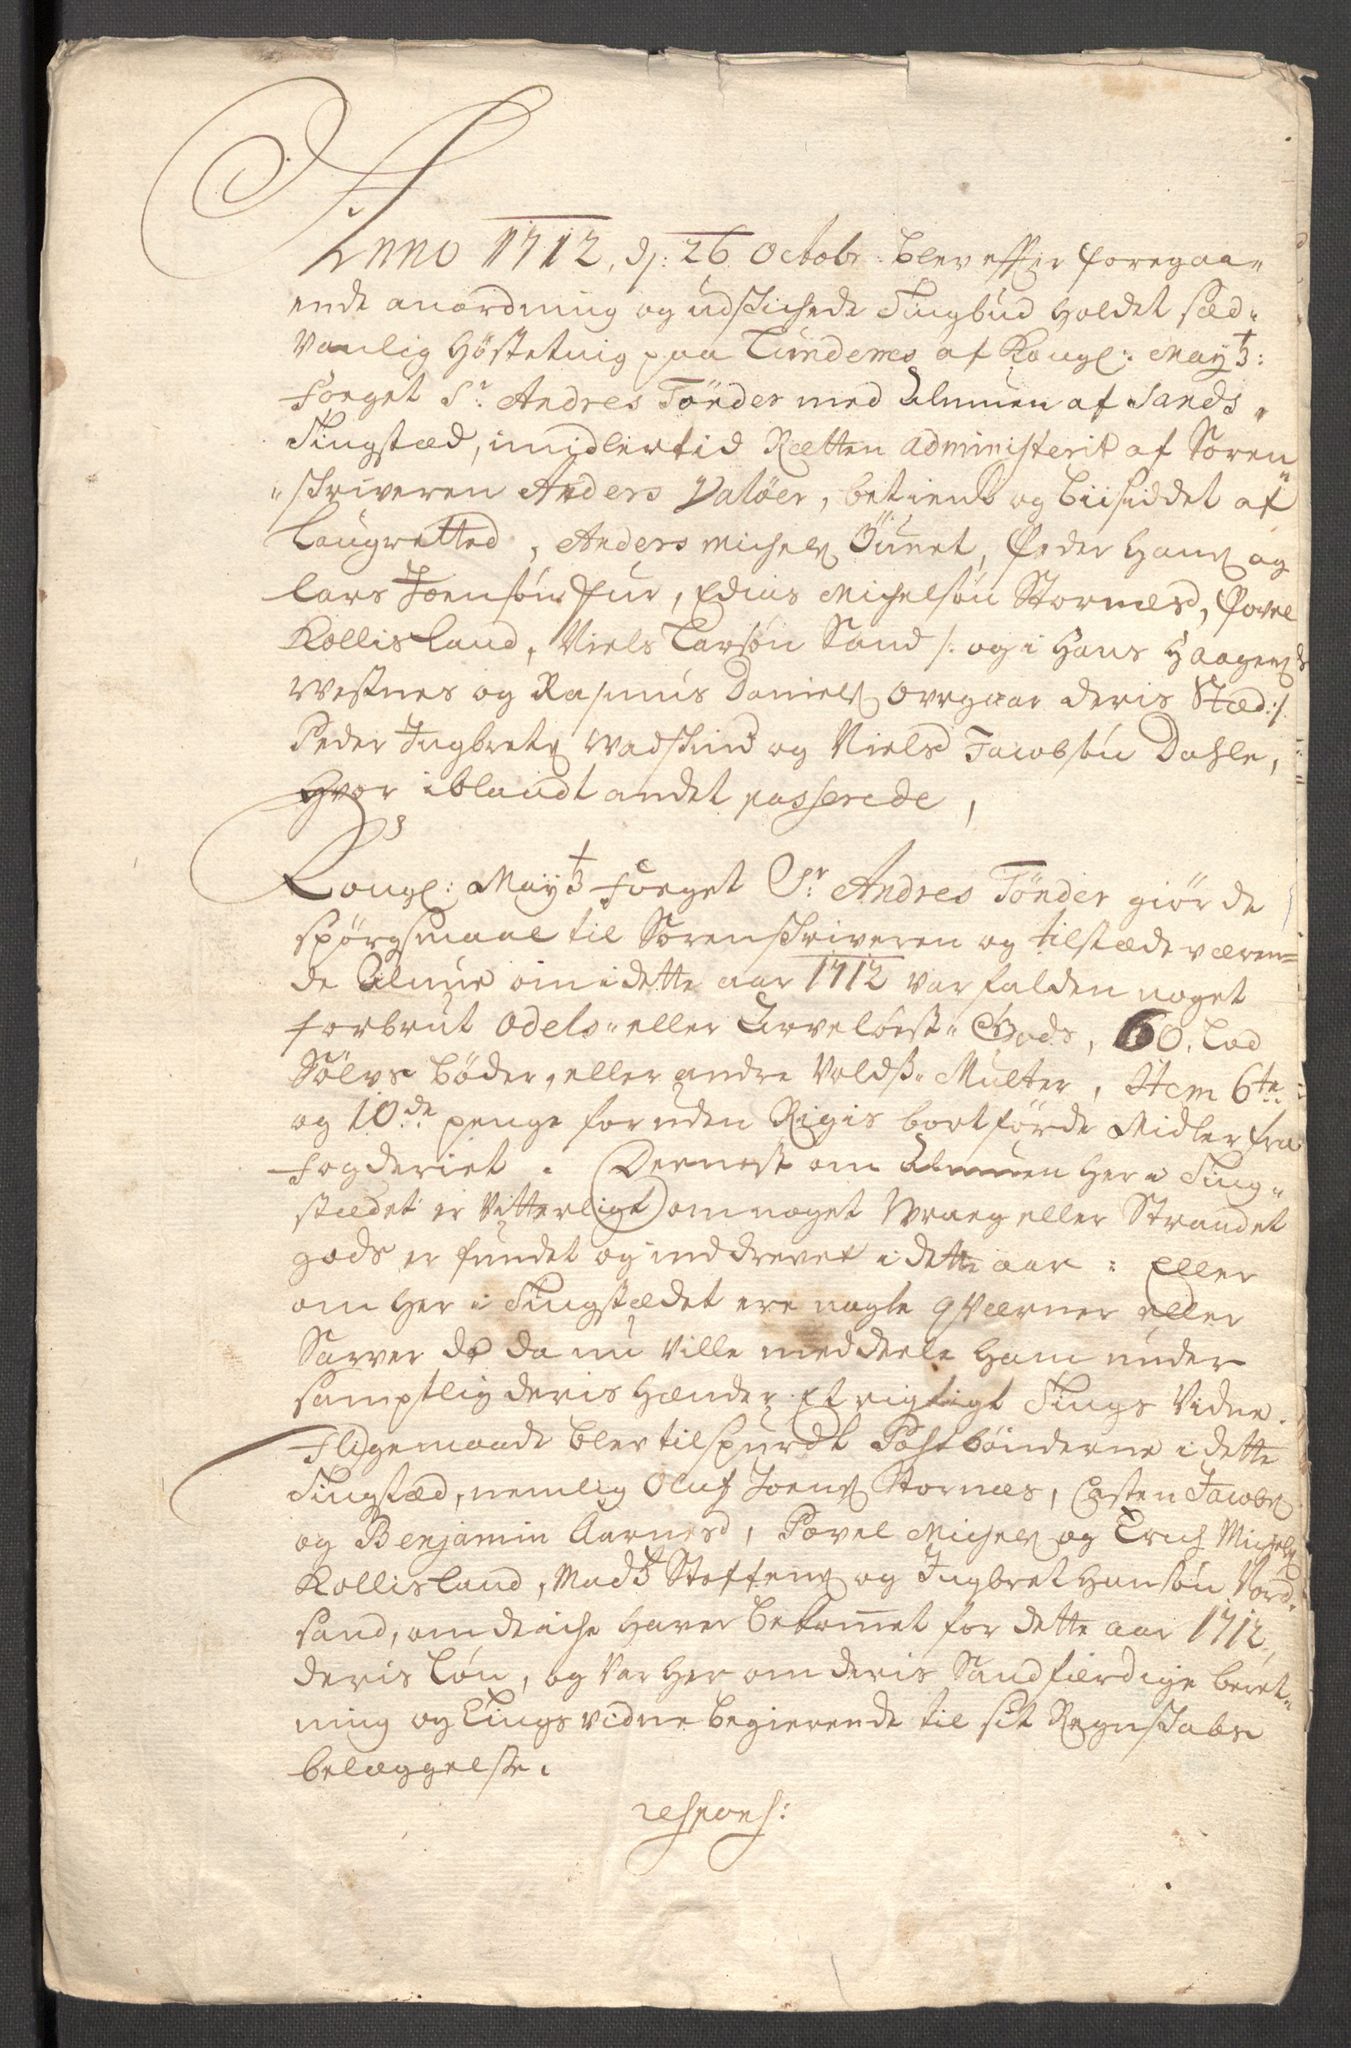 Anno 1712, d: 26 Octobr: blev effter foregaa-
ende anordning og udskichede Tingbud holdet sæd-
vanlig Høsteting paa Tunderøes af Kongl: May:
Foeget Sr: Andres Tönder med Almuen af Sands
Tingstæd, imidlertid Rætten administerit af Soren
skriveren Anders Valøer, betient og biisiddet af
Laugrætted, Anders Michels, Peder Hans og
Lars Joensøn Fur, Edias Michelsøn Stornæs, Povel
Kollisland, Niels Larsøn Sand /: og i Hans Haagens
Westnes og Rasmus Daniels Ovregaar deris Stæd :/
Peder Ingbrets Wadskind og Niels Jacobsøn Dahle,
Hvor iblandt andet passerede,
Kongl: May Foeget Sr: Andres Tönder giørde
spørgsmaal til Sorenskriveren og tilstædeværen=
de Almue om i dette aar 1712 var falden noget
forbrut Odels- eller Arveløst- Gods, 60. Lod
Sølvs bøder, eller andre Voldß- Mulcter, Item 6te
og 10de penge for uden Rigis bortførde Midler fra
Fogderiet. Dernest om Almuen her i Ting-
stædet er Vitterligt om noget Wraeg eller Strandet
gods er fundet og inddrevet i dette aar: Eller
om her i Tingstædet ere nogle qværner eller
Sawer de da nu Ville meddeele ham under
samptlig deris Hænder Et rigtigt Tings Vidne.
Iligemaade blev tilspurdt Postbønderne i dette
Tingstæd, nemlig Oluf Joens Stornæs, Casten Jacobs
og Benjamin Aarnesd, Povel Michels og Erich Michels
Kollisland, Madß Steffens og Ingbret Hansøn Nord-
sand, om de iche haver bekommet for dette aar 1712
deris Løn, og var her om deris Sandfærdige beret-
ning og Tings vidne begierende til sit Regnskabs
belæggelse.
respons: